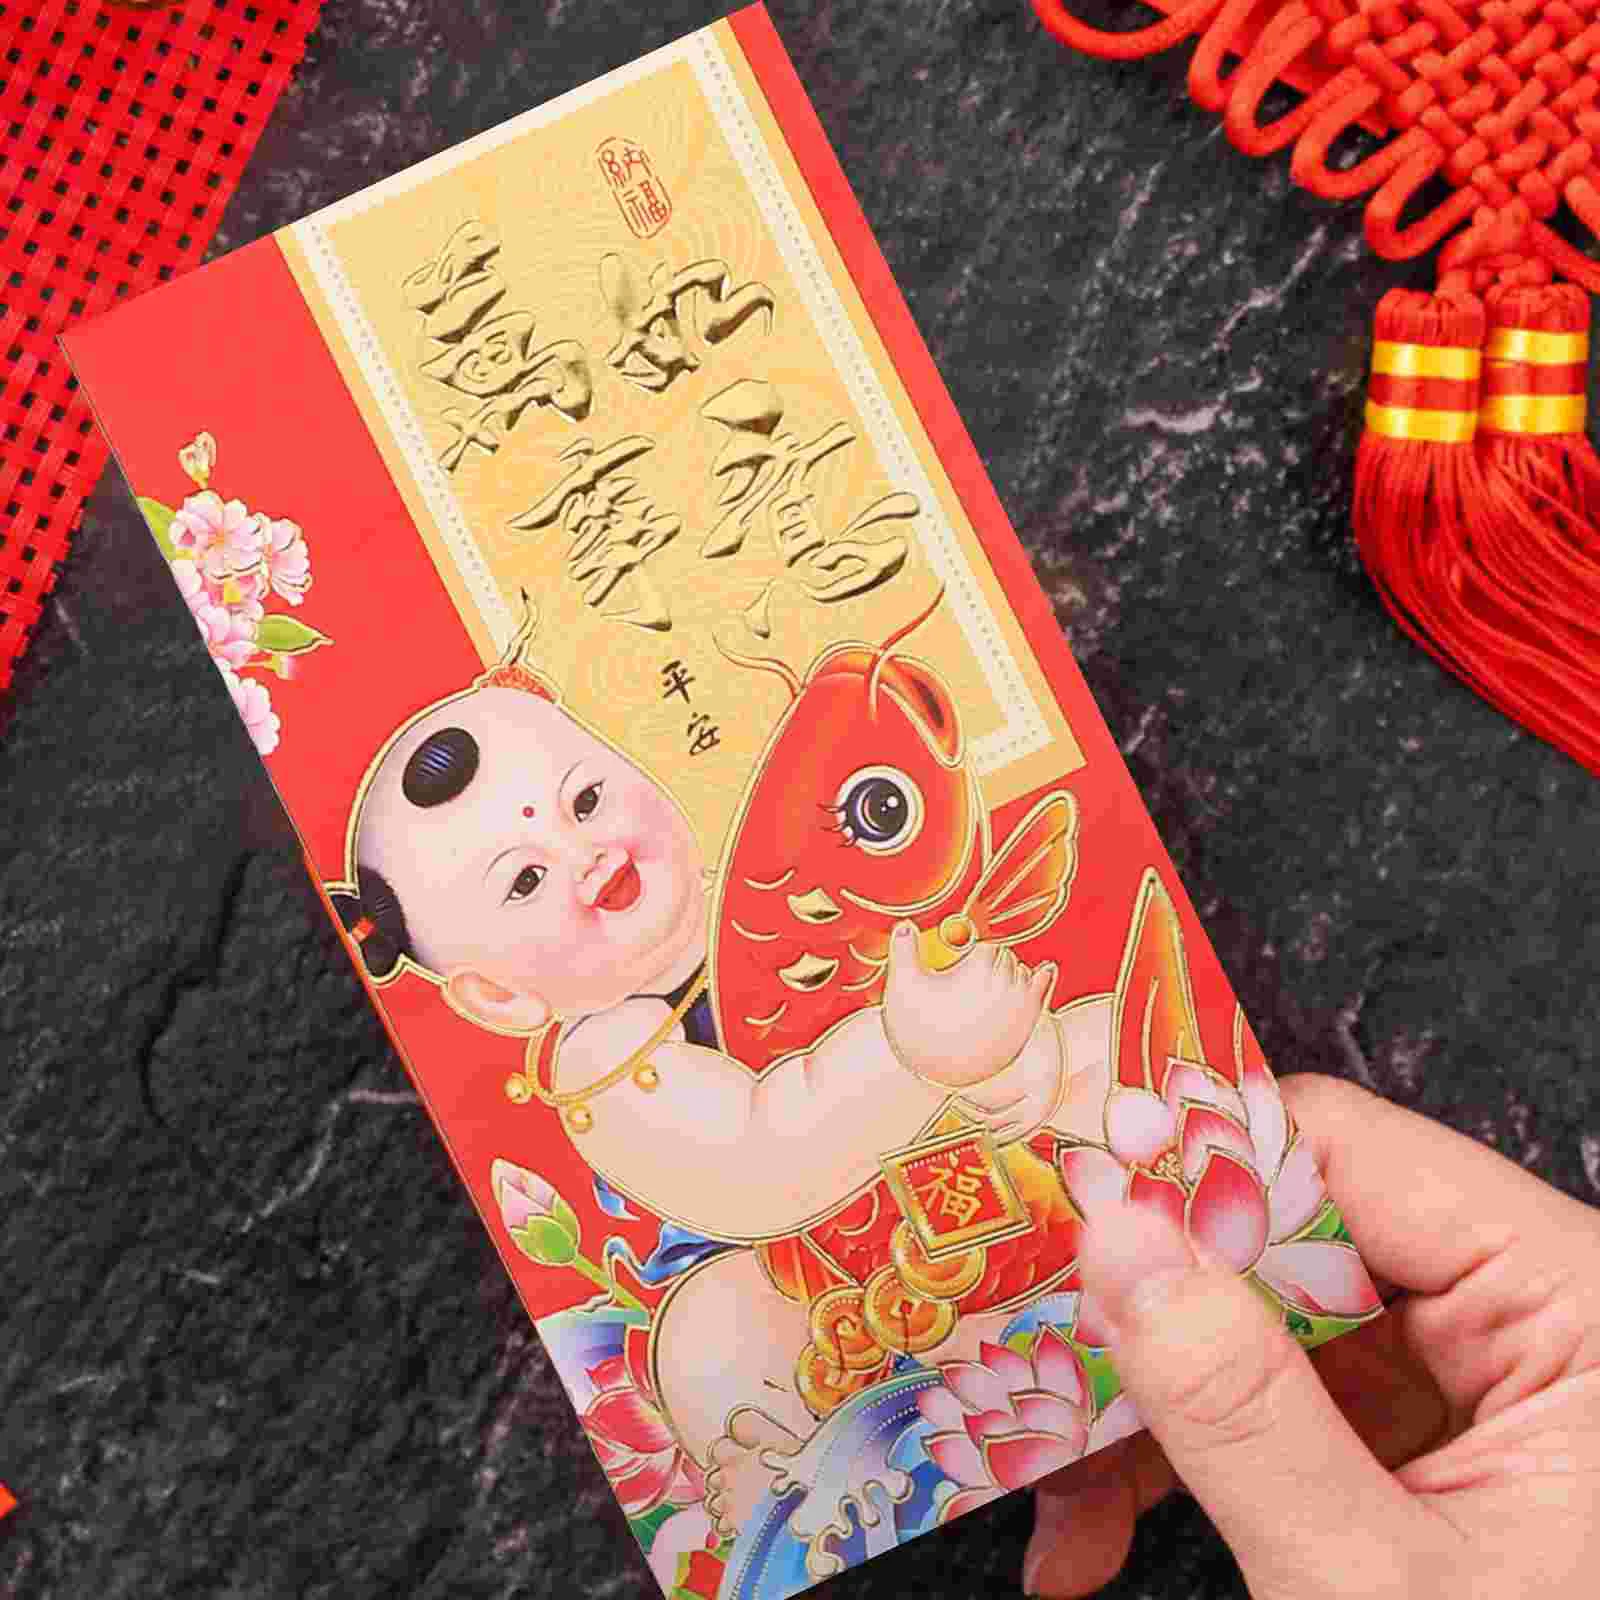 納福
萬事
如意
平安
福